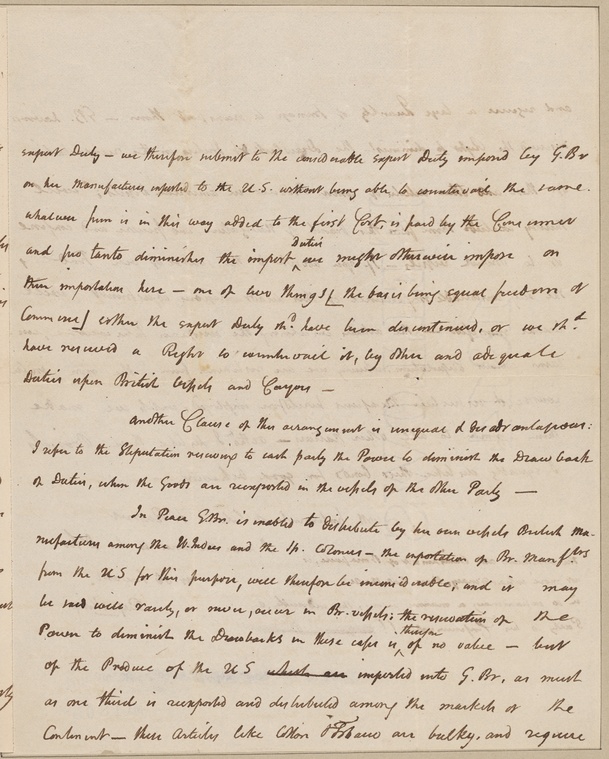 export Duty — we therefore submit to the considerable export Duty imposed by G. Br
on her Manufactures exported to the U.S. without being able to countervail the same.
whatever sum is in this way added to the first Cost, is paid by the Consumer
and pro tanto diminishes the import Duties we might otherwise impose on
their importation here — one of two things [the basis being equal freedom of
Commerce] either the export Duty shd. have been discontinued, or we shd.
have reserved a Right to countervail it, by other and adequate
Duties upon British vessels and Cargoes —
another Clause of this arrangement is unequal & disadvantageous:
I refer to the Stipulation reserving to each party the Power to diminish the Drawback
of Duties, when the Goods are reexported in the vessels of the other Party —
In Peace G. Br. is enabled to distribute by her own vessels British Ma-
nufactures among the W. Indies and the Sp. Colonies — the exportation of Br. Manufrs
from the U S for this purpose, will therefore be inconsiderable, and it may
be said will rarely, or never, occur in Br. vessels: the reservation of the
Power to diminish the Drawbacks in these cases is, therefore of no value — but
of the Produce of the U S which are imported into G. Br, as much
as one third is reexported and distributed among the markets of the
Continent — these Articles like Cotton & Tobacco are bulky, and require